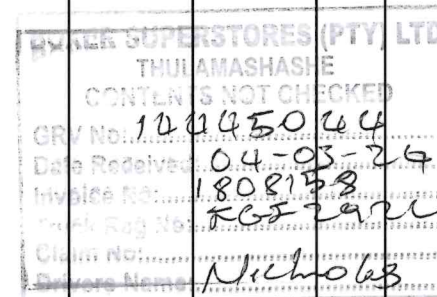 BOXER SUPERSTORES (PTY) LTD
THULAMASHASHE
CONTENTS NOT CHECKED
GRV No: 14445044
Date Received: 04-03-24
Invoice No: 1808158
Truck Reg No:
Claim No:
Drivers Name: